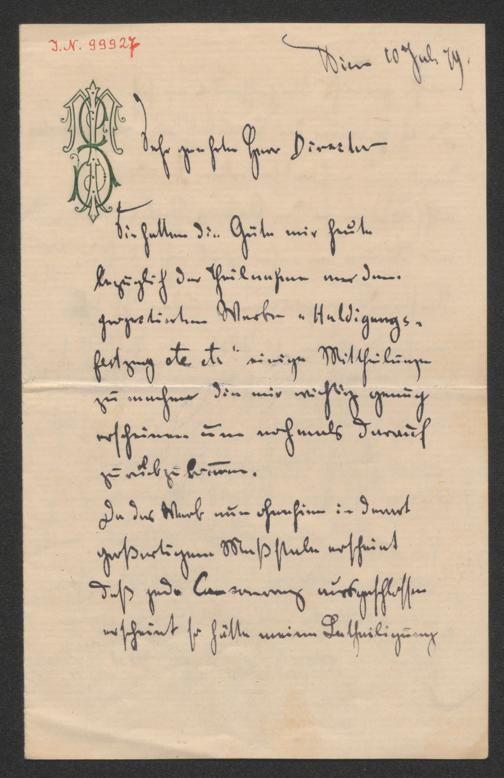 I.N. 99927
Wien 10 Juli 79.
Sehr geehrter Herr Director
Sie hatten die Güte mir heute
bezüglich der Theilnahme an dem
projectirten Werke "Huldigungs-
festzug etc etc" einige Mittheilungen
zu machen die mir wichtig genug
erscheinen um nochmals darauf
zurückzukommen.
Da das Werk nun ohnehin in derart
großartigem Maßstabe erscheint
daß jede Concurrenz ausgeschlossen
erscheint so hätte meine Betheiligung